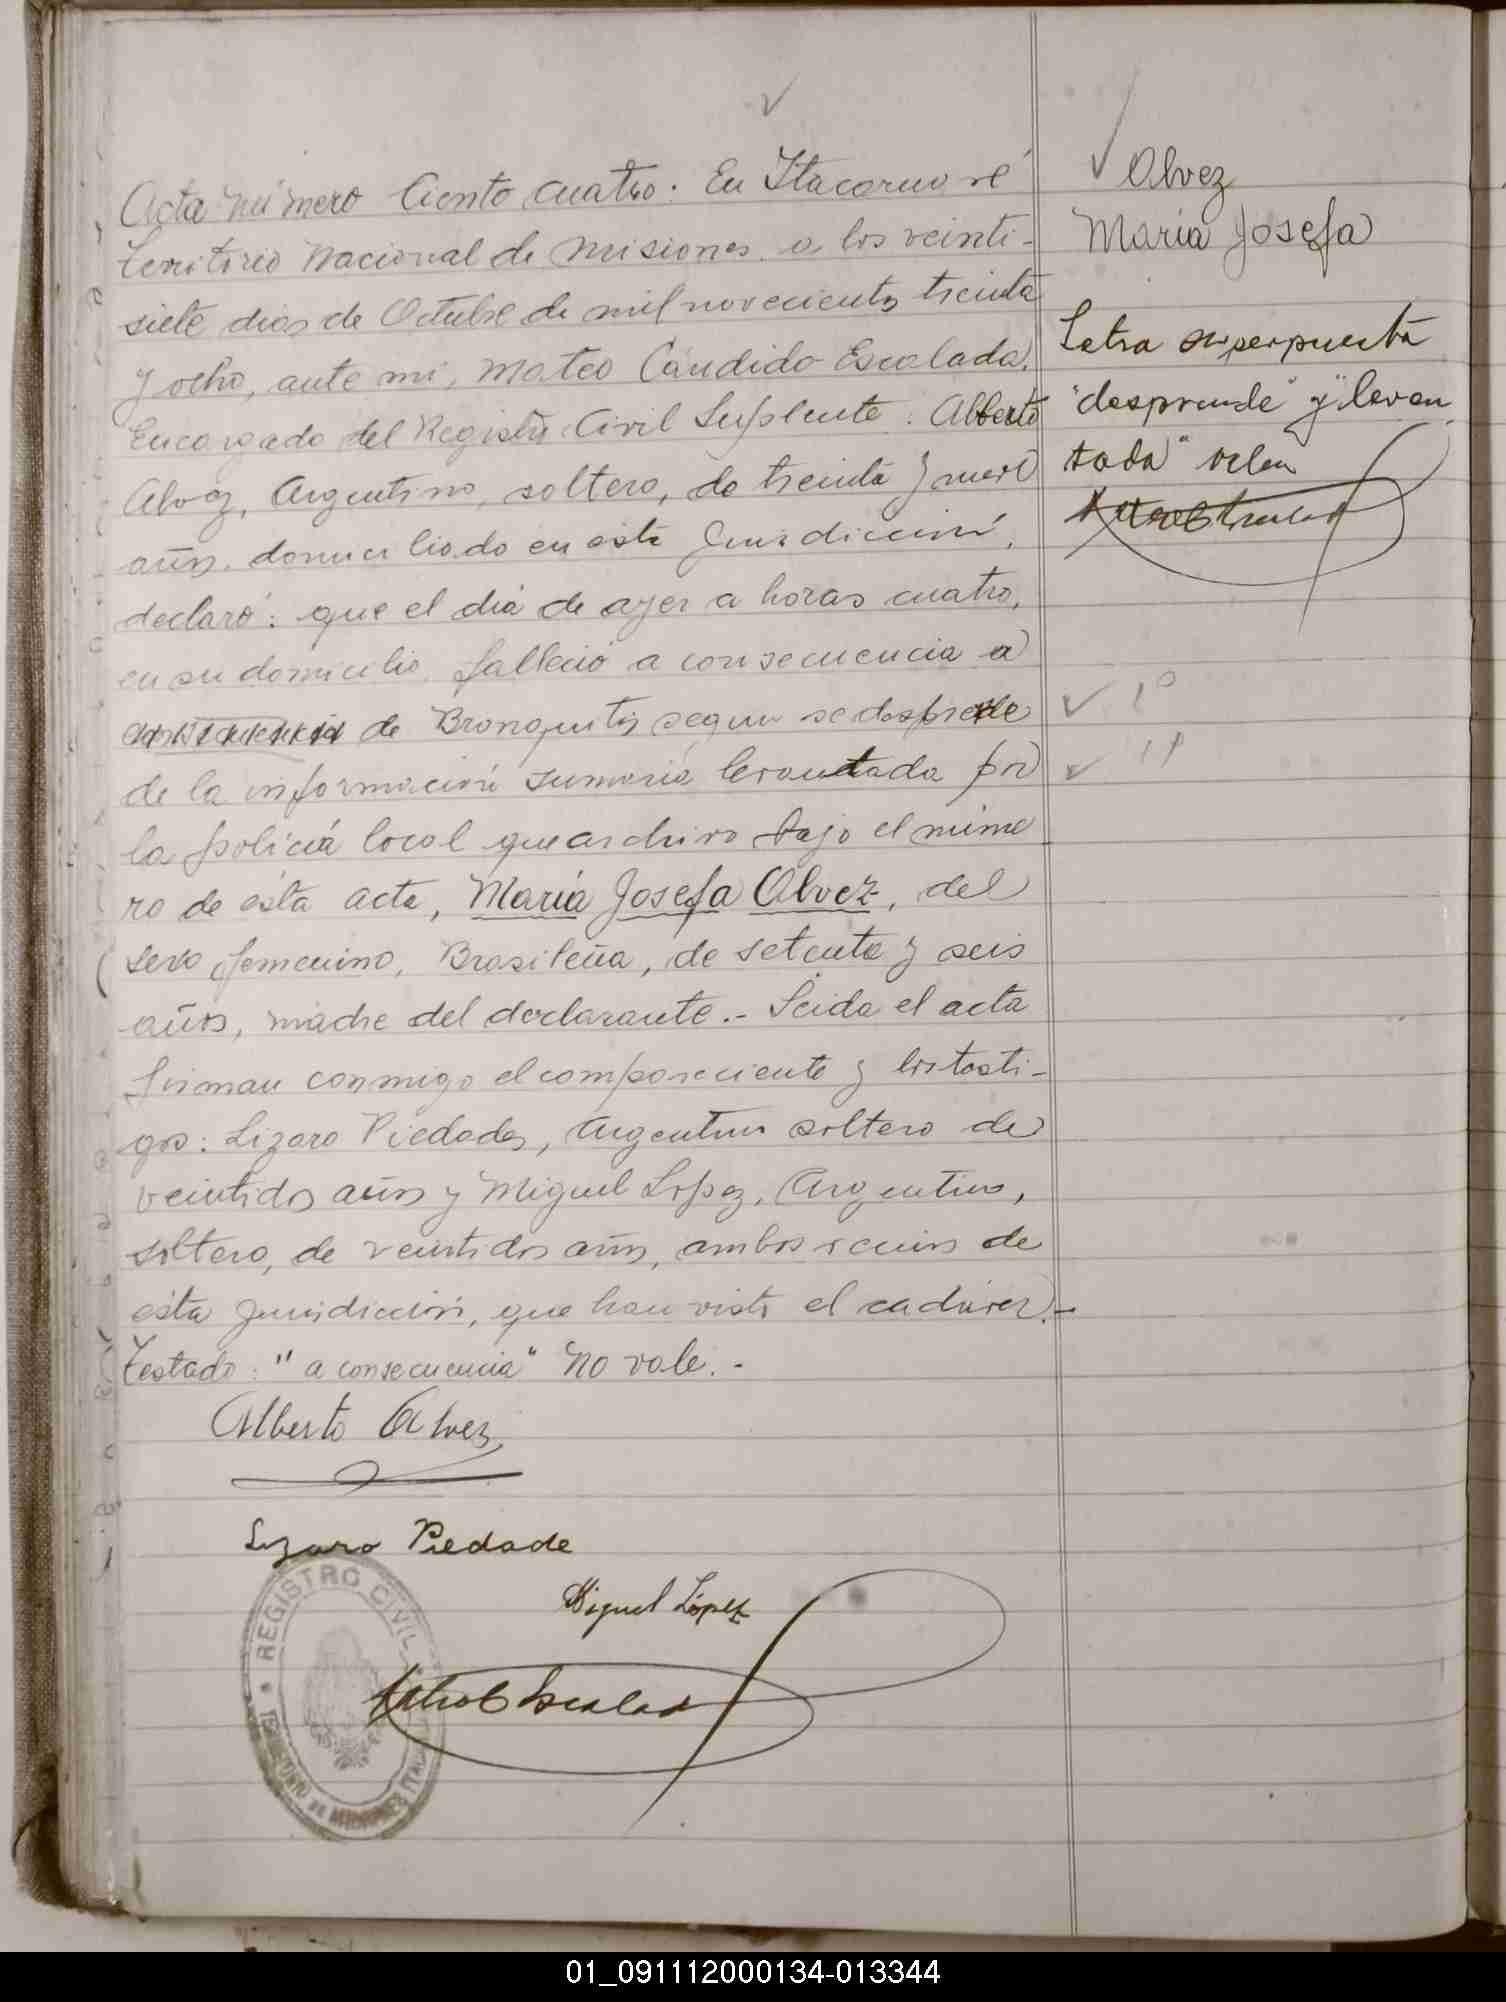 Acta número Ciento cuatro. En Itacaruaré
Territorio Nacional de Misiones a los veinti-
siete dias de Octubre de mil novecientos treinta
y ocho, ante mi, Mateo Cándido Escalada,
Encargado del Registro Civil Suplente: Alberto
Alvez, Argentino, soltero, de treinta y nueve
años, domiciliado en esta Jurisdicción,
declaró: que el dia de ayer a horas cuatro,
en su domicilio, falleció a consecuencia a
consecuencia de Bronquitis segun se desprende
de la información sumaria levantada por
la policia local que archivo bajo el núme
ro de ésta acta, Maria Josefa Alvez, del
sexo femenino, Brasileña, de setenta y seis
años, madre del declarante.- Leida el acta
firman conmigo el compareciente y los testi-
gos: Lizaro Piedade, Argentino soltero de
veintidos años y Miguel Lopez, Argentino,
soltero, de veintidos años, ambos vecinos de
ésta Jurisdicción, que han visto el cadáver.-
Testado: "a consecuencia" no vale.-
Alberto Alvez
Lizaro Piedade
Miguel López
Mateo C Escalada
REGISTRO CIVIL
TERRITORIO DE MISIONES
Alvez
Maria Josefa
Letra superpuesta
"desprende" y "levan
tada" valen
Mateo C Escalada
01_091112000134-013344